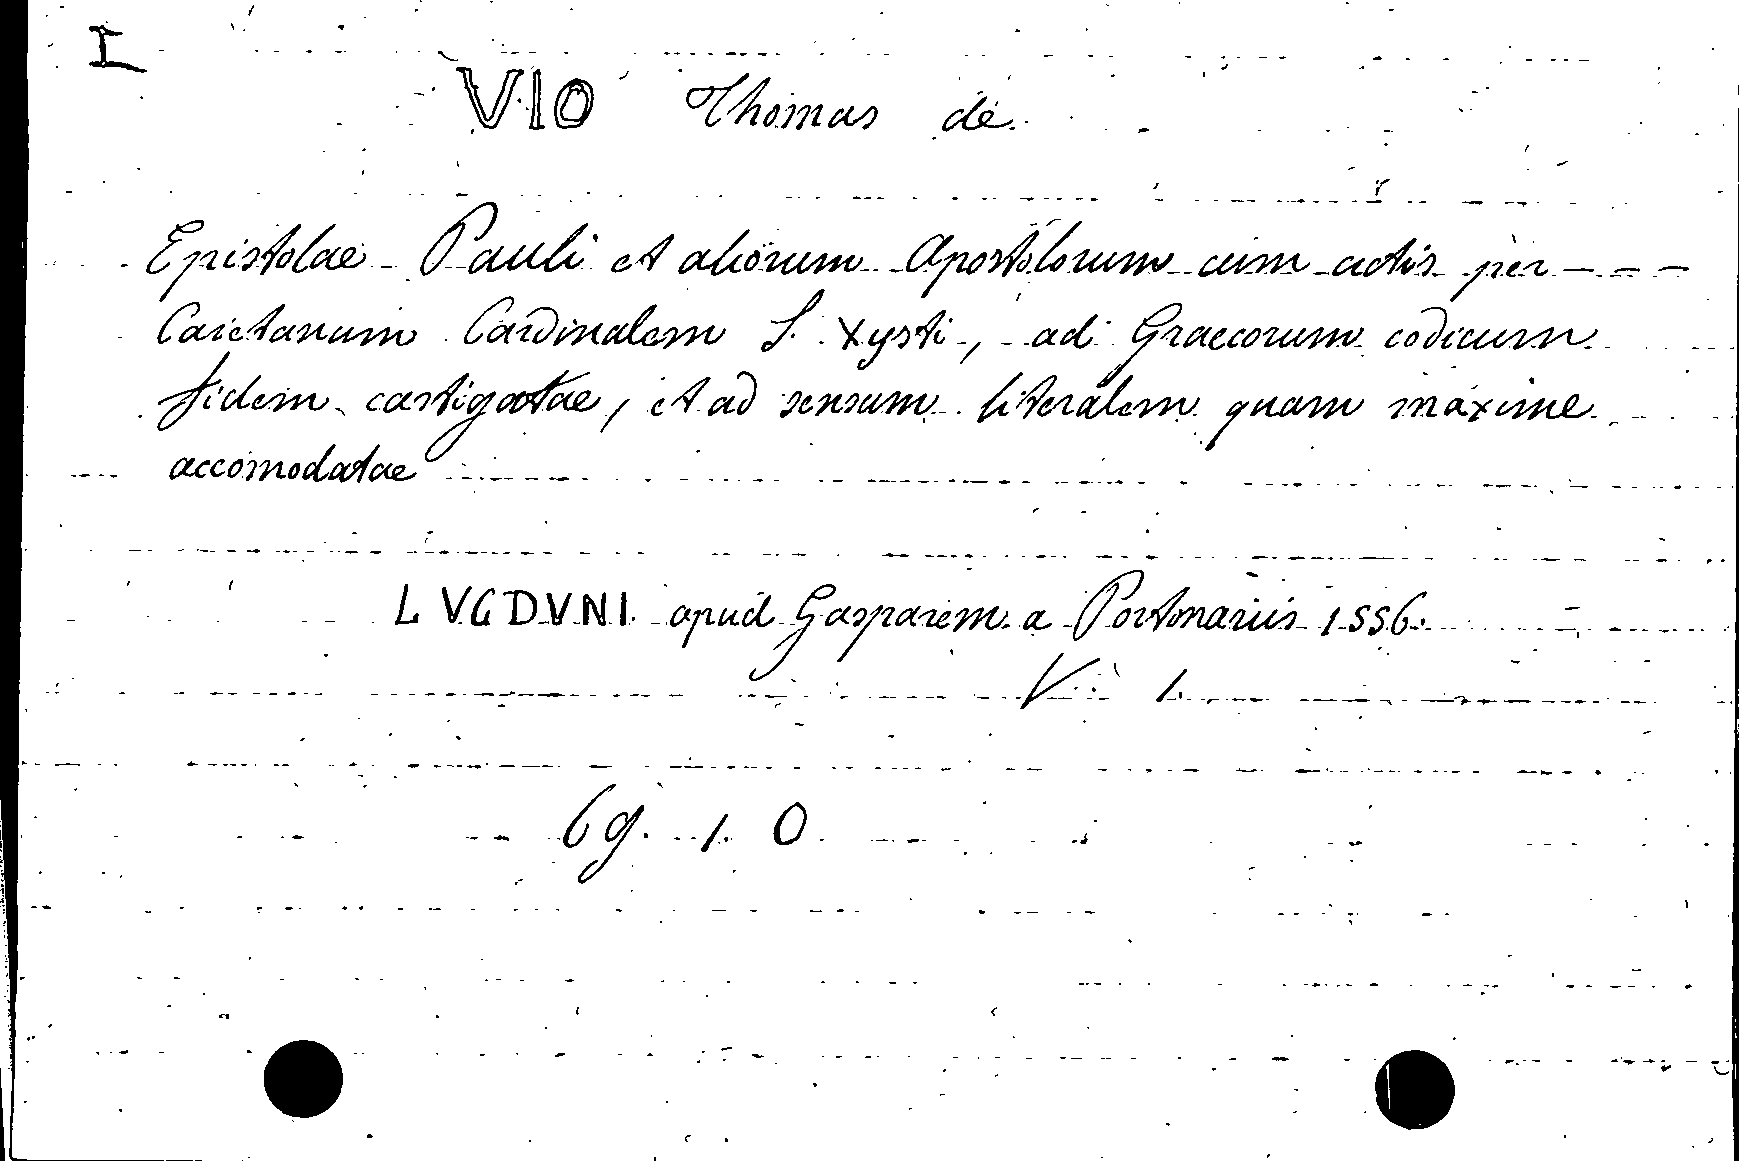 I
VIO Thomas de
Epistolae Pauli et aliorum Apostolorum cum actis per ----
Caietanum Cardinalem S. Xysti, ad Graecorum codicum
fidem castigatae, et ad sensum literalem quam maxime
accomodatae
LVGDVNI apud Gasparem a Portonariis 1556.
V. 1.
69. 1. 0